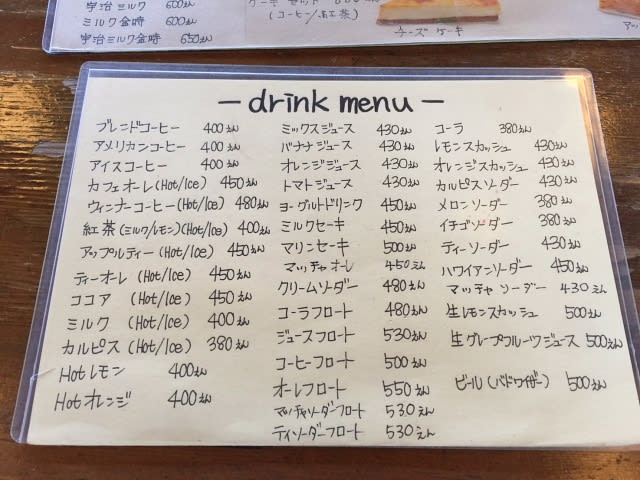 宇治ミルク 600えん
ミルク金時 600えん
宇治ミルク金時 650えん
(コーヒー/紅茶)
チーズケーキ
- drink menu -
ブレンドコーヒー 400えん
アメリカンコーヒー 400えん
アイスコーヒー 400えん
カフェオーレ(Hot/Ice) 450えん
ウィンナーコーヒー(Hot/Ice) 480えん
紅茶(ミルク/レモン)(Hot/Ice) 400えん
アップルティー(Hot/Ice) 450えん
ティーオーレ (Hot/Ice) 450えん
ココア (Hot/Ice) 450えん
ミルク (Hot/Ice) 400えん
カルピス(Hot/Ice) 380えん
Hotレモン 400えん
Hotオレンジ 400えん
ミックスジュース 430えん
バナナジュース 430えん
オレンジジュース 430えん
トマトジュース 430えん
ヨーグルトドリンク 450えん
ミルクセーキ 450えん
マリンセーキ 500えん
マッチャオーレ 450えん
クリームソーダー 480えん
コーラフロート 480えん
ジュースフロート 530えん
コーヒーフロート 500えん
オーレフロート 550えん
マッチャソーダーフロート 530えん
ティソーダーフロート 530えん
コーラ 380えん
レモンスカッシュ 430えん
オレンジスカッシュ 430えん
カルピスソーダー 430えん
メロンソーダー 380えん
イチゴソーダー 380えん
ティーソーダー 430えん
ハワイアンソーダー 450えん
マッチャソーダー 430えん
生レモンスカッシュ 500えん
生グレープフルーツジュース 500えん
ビール(バドワイザー) 500えん